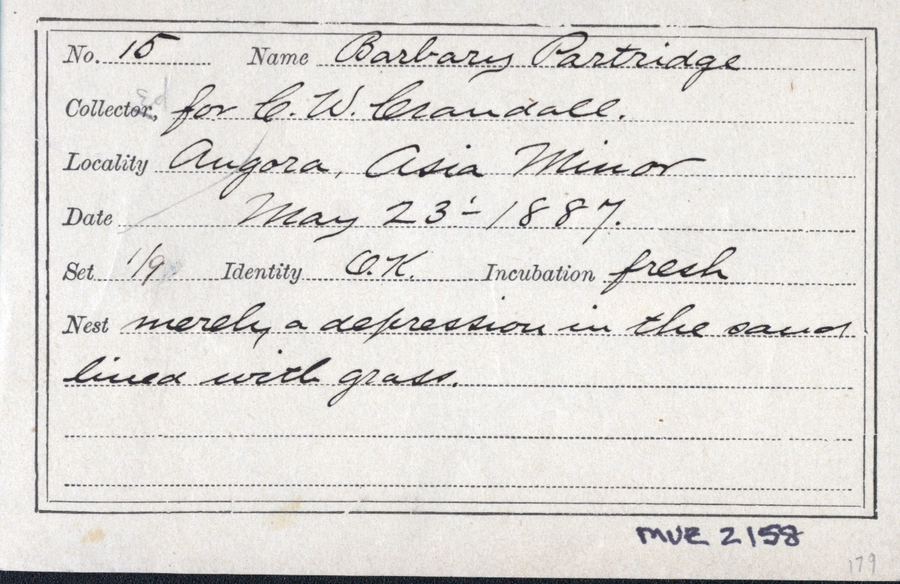 No. 15 Name Barbary Partridge
Collected, for C. W. Crandall.
Locality Angora, Asia Minor
Date May 23'- 1887.
Set 1/9 Identity O.K. Incubation fresh
Nest merely a depression in the sand
lined with grass.
MVE 2158
179